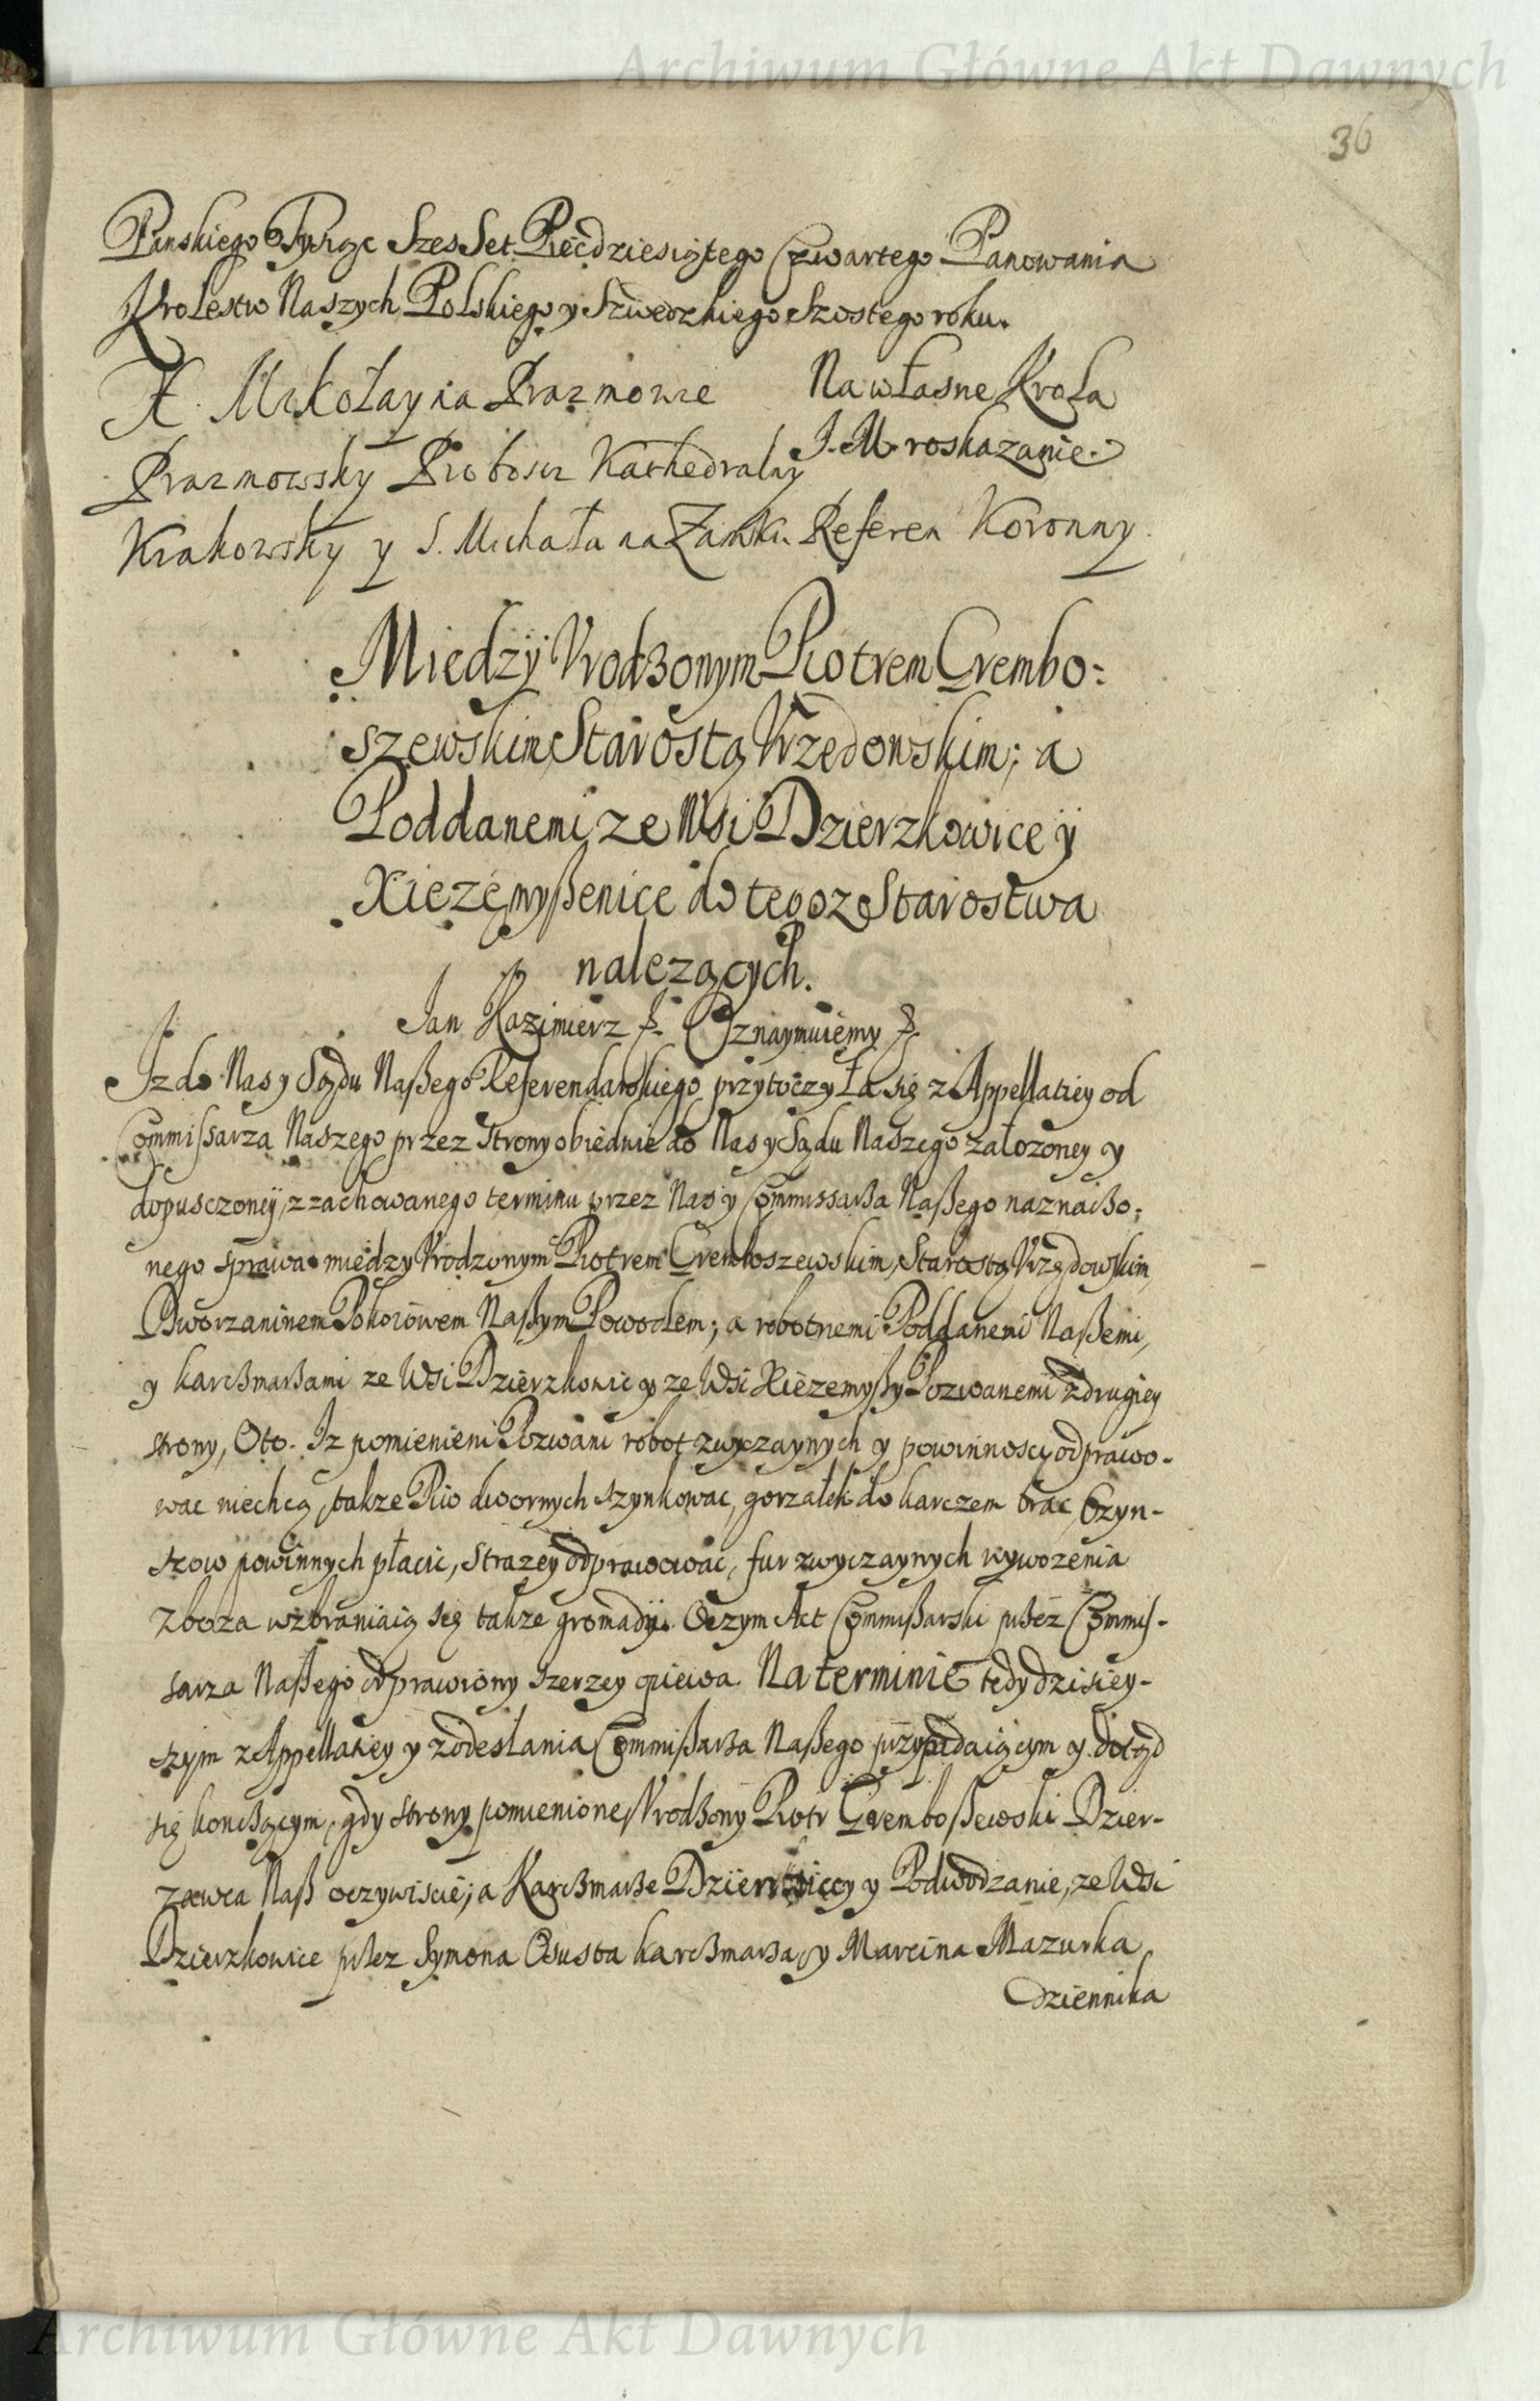 Archiwum Główne Akt Dawnych
36
Panskiego Tysiąc Szes Set Pięcdziesiątego Czwartego Panowania
Krolestw Naszych Polskiego y Szwedzkiego Szostego roku.
X. Mikołay na Prazmowie Na własne Krola
J. M. roskazanie.
Prazmowsky Proboscz Kathedralny
Krakowsky y S. Michała na Zamku Referen Koronny.
Między Vrodzonym Piotrem Crembo:
szewskim Starostą Vrzędowskim; a
Poddanemi ze Wsi Dzierzkowice ÿ
Xiezemyßenice do tegoz Starostwa
nalezących.
Jan Kazimierz Oznaymuiemy
Iz do Nas y Sądu Naßego Referendarskiego przytoczyła się z Appellatiey od
Commissarza Naszego przez strony obiedwie do Nas y Sądu Naszego załozoney y
dopusczoney, z zachowanego terminu przez Nas y Commissarßa Naßego naznaczo:
nego sprawa między Vrodzonym Piotrem Cremboszewskim, Starostą Vrzędowskim,
Dworzaninem Pokoiowem Naßym Powodem; a robotnemi Poddanemi Naßemi,
y karcßmarßami ze Wsi Dzierzkowic y ze Wsi Xiezemyßy Pozwanemi z drugiey
strony, Oto. Iz pomienieni Pozwani robot zwyczaynych y powinnosci odprawo-
wac niechcą, takze Piw dwornych szynkowac, gorzałek do karczem brac, Czyn-
szow powinnych płacic, Strazey odprawowac, fur zwyczaynych wywozenia
Zboza wzbraniaią się takze gromady. Oczym Act Commißarski przez Commis-
sarza Naßego odprawiony szerzey opiewa. Na terminie tedy dzisiey-
szym z Appellatiey y z odesłania Commißarßa Naßego przypadaiącym y dotąd
się koncßącym, gdy strony pomienione, Vrodzony Piotr Cremboßewski Dzier-
zawca Naß oczywiscie; a Karcßmarße y Podwodzanie, ze Wsi
Dzierzkowice przez Symona Osusta karcßmarßa, y Marcina Mazurka
Dziennika
Archiwum Główne Akt Dawnych